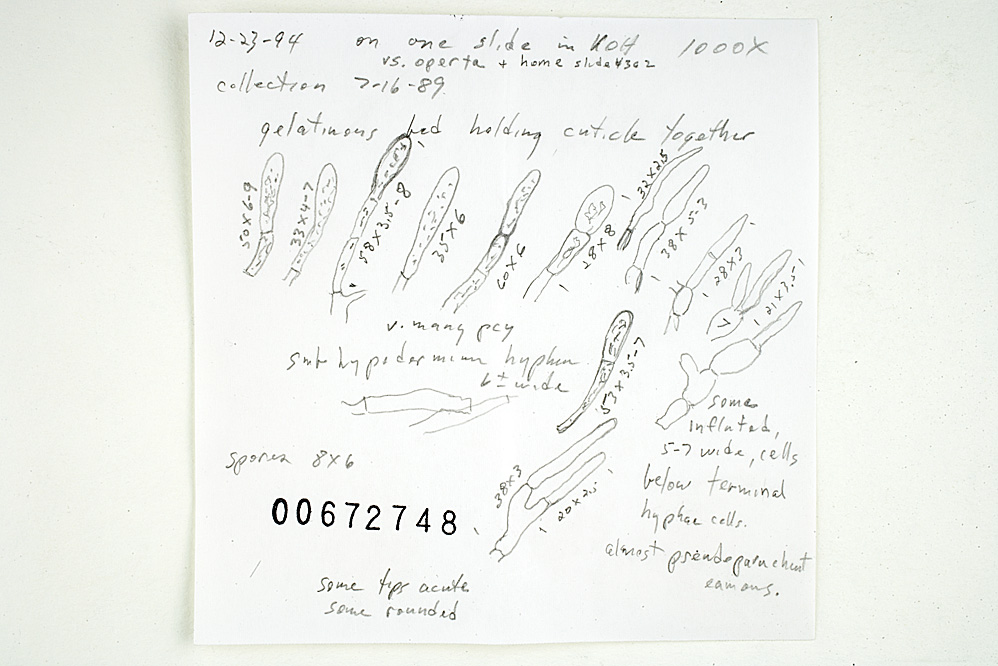 12-23-94 on one slide in KOH 1000X
vs. operta + home slide #302
collection 7-16-89
gelatinous bed holding cuticle together
50 X 6-9
33 X 4-7
58 X 3.5-8
35 X 6
60 X 6
28 X 8
32 X 2.5
38 X 5-3
28 X 3
21 X 3.5
v. many pcy
hypodermium hyphae
6± wide
53 X 3.5-7
some
inflated,
5-7 wide, cells
below terminal
hyphae cells.
almost pseudoparenchymat
eamous.
spores 8X6
38 X 3
20 X 2.5
00672748
some tips acute
some rounded